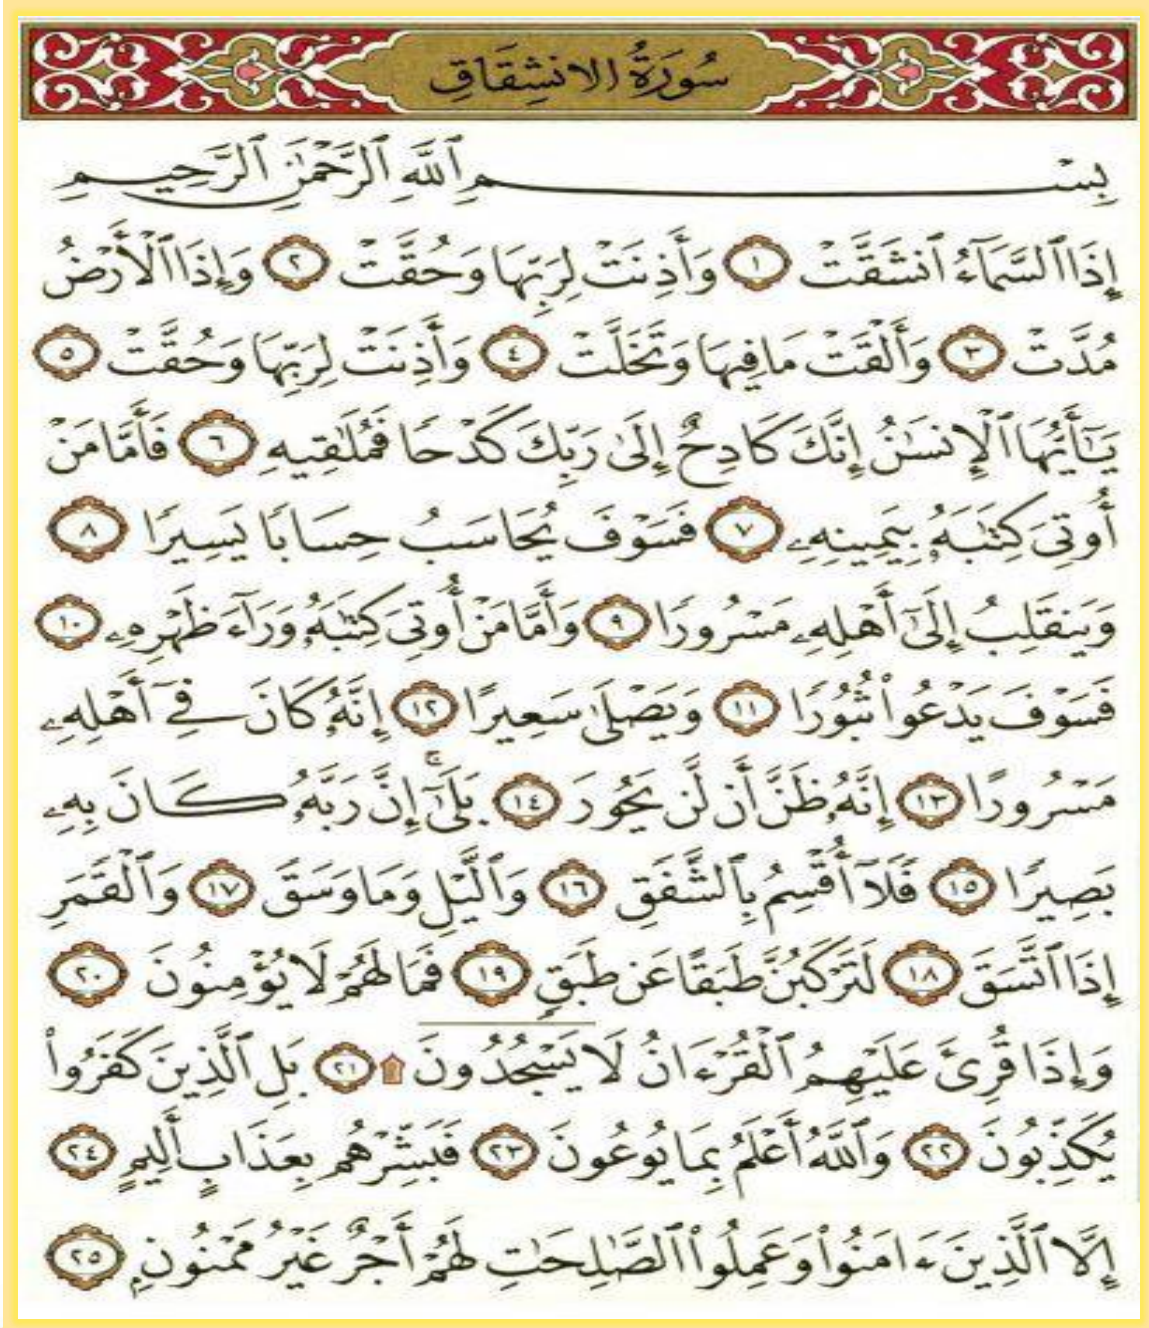 سُورَةُ الانشِقَاقِ
بِسْمِ ٱللَّهِ ٱلرَّحْمَٰنِ ٱلرَّحِيمِ
إِذَا ٱلسَّمَآءُ ٱنشَقَّتْ ١ وَأَذِنَتْ لِرَبِّهَا وَحُقَّتْ ٢ وَإِذَا ٱلْأَرْضُ
مُدَّتْ ٣ وَأَلْقَتْ مَا فِيهَا وَتَخَلَّتْ ٤ وَأَذِنَتْ لِرَبِّهَا وَحُقَّتْ ٥
يَٰٓأَيُّهَا ٱلْإِنسَٰنُ إِنَّكَ كَادِحٌ إِلَىٰ رَبِّكَ كَدْحًا فَمُلَٰقِيهِ ٦ فَأَمَّا مَنْ
أُوتِىَ كِتَٰبَهُۥ بِيَمِينِهِۦ ٧ فَسَوْفَ يُحَاسَبُ حِسَابًا يَسِيرًا ٨
وَيَنقَلِبُ إِلَىٰٓ أَهْلِهِۦ مَسْرُورًا ٩ وَأَمَّا مَنْ أُوتِىَ كِتَٰبَهُۥ وَرَآءَ ظَهْرِهِۦ ١٠
فَسَوْفَ يَدْعُوا۟ ثُبُورًا ١١ وَيَصْلَىٰ سَعِيرًا ١٢ إِنَّهُۥ كَانَ فِىٓ أَهْلِهِۦ
مَسْرُورًا ١٣ إِنَّهُۥ ظَنَّ أَن لَّن يَحُورَ ١٤ بَلَىٰٓۚ إِنَّ رَبَّهُۥ كَانَ بِهِۦ
بَصِيرًا ١٥ فَلَآ أُقْسِمُ بِٱلشَّفَقِ ١٦ وَٱلَّيْلِ وَمَا وَسَقَ ١٧ وَٱلْقَمَرِ
إِذَا ٱتَّسَقَ ١٨ لَتَرْكَبُنَّ طَبَقًا عَن طَبَقٍ ١٩ فَمَا لَهُمْ لَا يُؤْمِنُونَ ٢٠
وَإِذَا قُرِئَ عَلَيْهِمُ ٱلْقُرْءَانُ لَا يَسْجُدُونَ ۩ ٢١ بَلِ ٱلَّذِينَ كَفَرُوا۟
يُكَذِّبُونَ ٢٢ وَٱللَّهُ أَعْلَمُ بِمَا يُوعُونَ ٢٣ فَبَشِّرْهُم بِعَذَابٍ أَلِيمٍ ٢٤
إِلَّا ٱلَّذِينَ ءَامَنُوا۟ وَعَمِلُوا۟ ٱلصَّٰلِحَٰتِ لَهُمْ أَجْرٌ غَيْرُ مَمْنُونٍۭ ٢٥